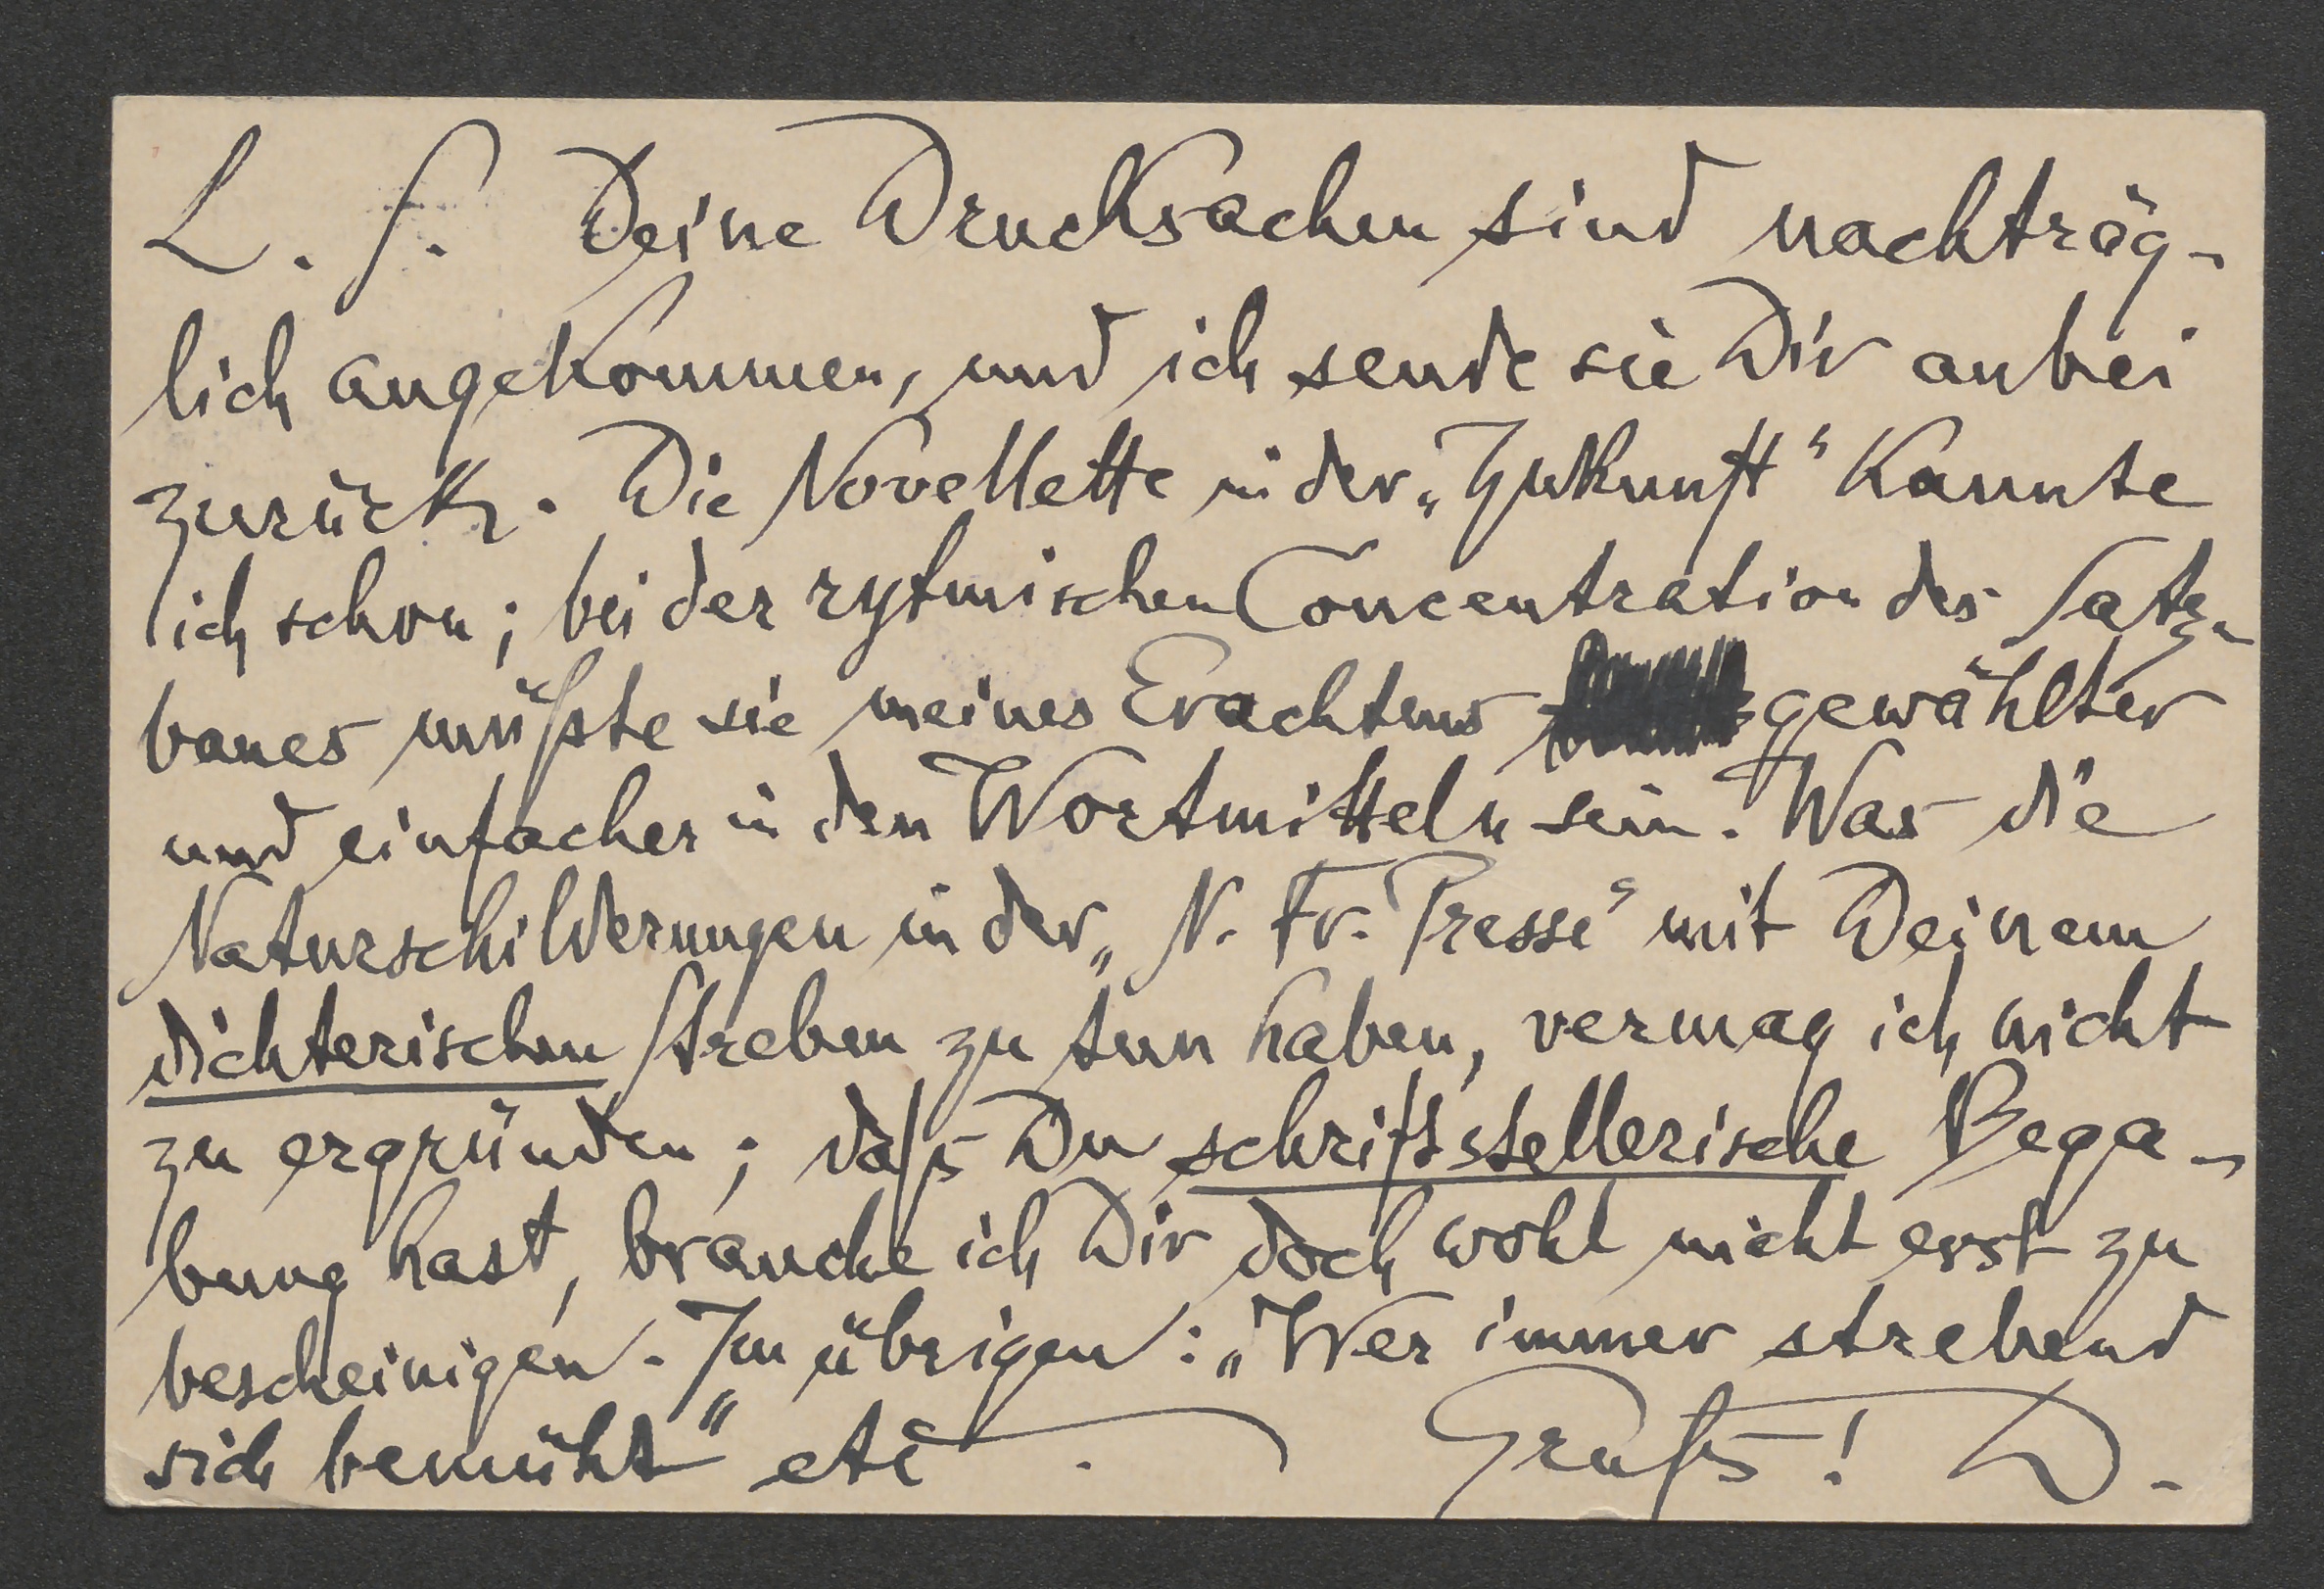 L. S. Deine Drucksachen sind nachträg-
lich angekommen, und ich sende sie Dir anbei
zurück. Die Novellette in der „Zukunft“ kannte
ich schon; bei der rytmischen Concentration des Satz-
baues müßte sie meines Erachtens gewählter
und einfacher in den Wortmitteln sein. Was die
Naturschilderungen in der „N. Fr. Presse“ mit Deinem
dichterischen Streben zu tun haben, vermag ich nicht
zu ergründen; daß Du schriftstellerische Bega-
bung hast, brauche ich Dir doch wohl nicht erst zu
bescheinigen. Im übrigen: „Wer immer strebend
sich bemüht“ etc.     Gruß! D.